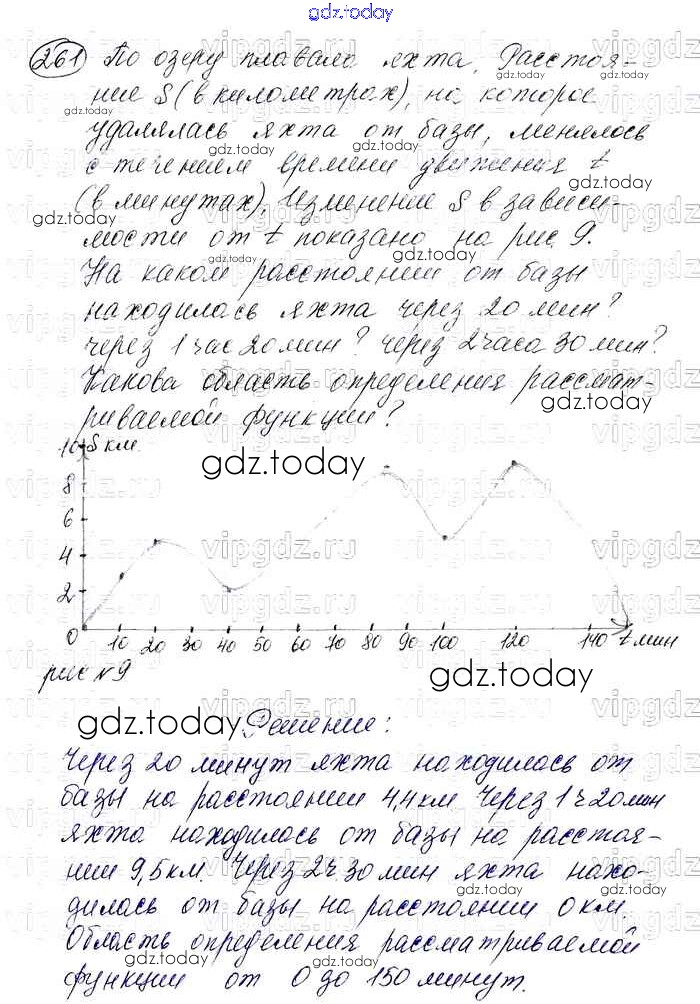 gdz.today
261 По озеру плавала яхта. Расстоя-
ние S (в километрах), на которое
удалялась яхта от базы, менялось
с течением времени движения t
(в минутах). Изменение S в зависи-
мости от t показано на рис 9.
На каком расстоянии от базы
находилась яхта через 20 мин?
через 1 час 20 мин? через 2 часа 30 мин?
Какова область определения рассмат-
риваемой функции?
10 S км
8
6
4
2
0 10 20 30 40 50 60 70 80 90 100 120 140 t мин
рис №9
Решение:
Через 20 минут яхта находилась от
базы на расстоянии 4,4 км. Через 1 ч 20 мин
яхта находилась от базы на расстоя-
нии 9,5 км. Через 2 ч. 30 мин яхта нахо-
дилась от базы на расстоянии 0 км.
Область определения рассматриваемой
функции от 0 до 150 минут.